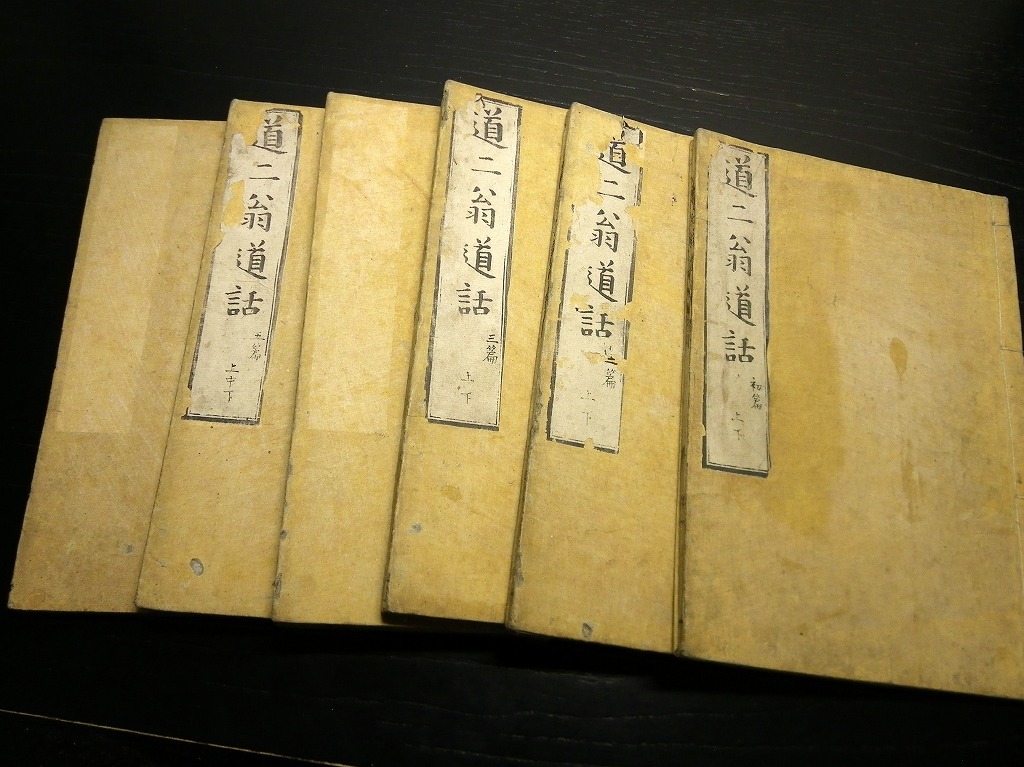 道二翁道話 初篇 上下
道二翁道話 二篇 上下
道二翁道話 三篇 上下
道二翁道話 五篇 上中下